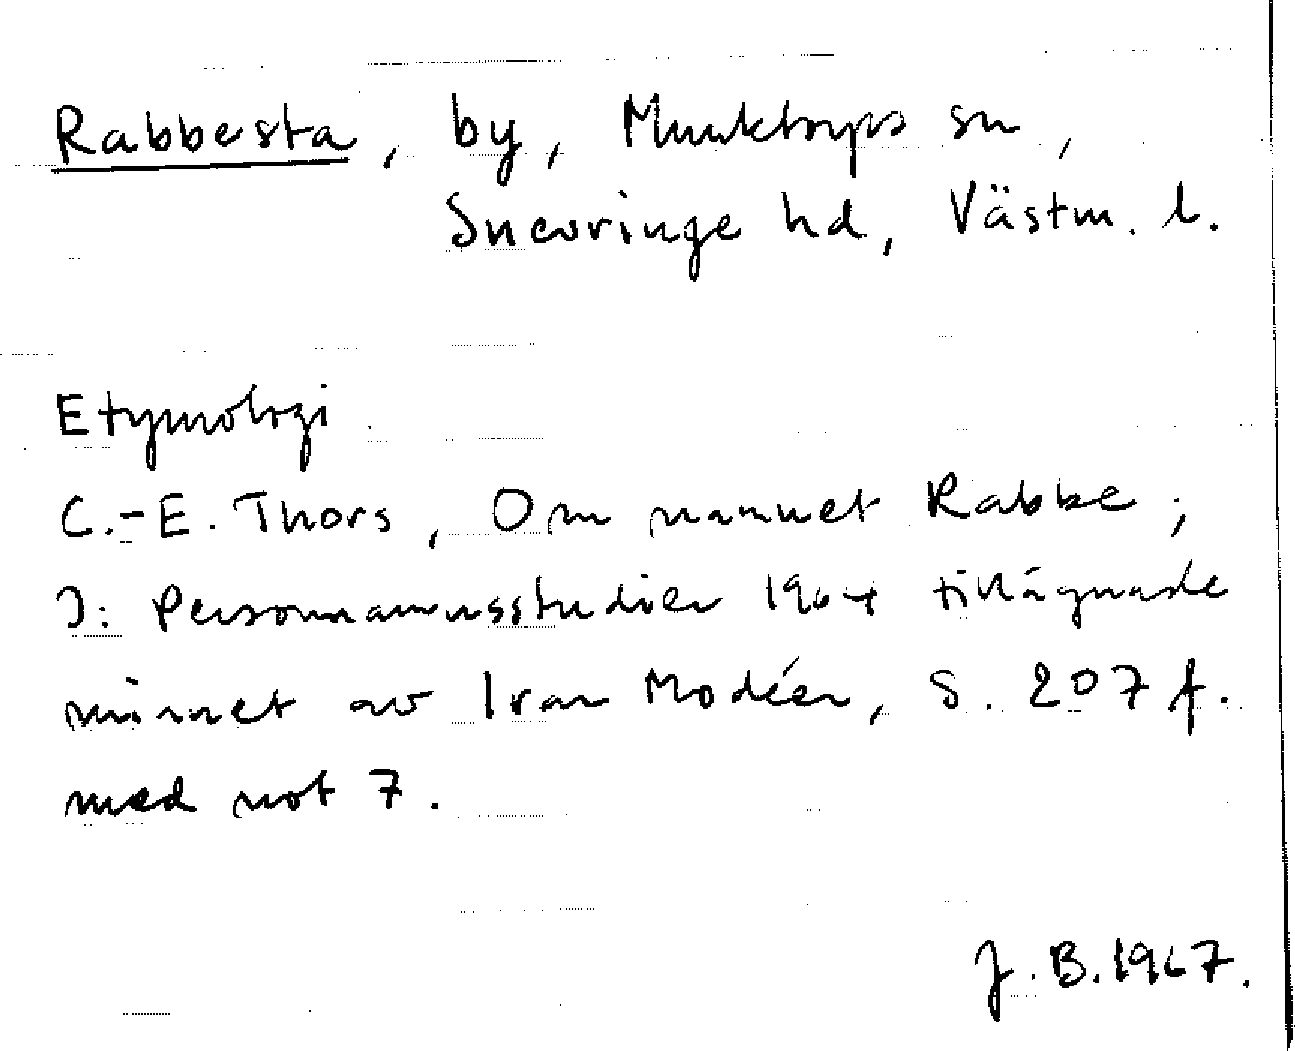 Rabbesta, by, Munktorps sn,
Snevringe hd, Västm. l.
Etymologi
C.-E. Thors, Om namnet Rabbe;
I: Personnamnsstudier 1964 tillägnade
minnet av Ivar Modéer, S. 207 f.
med not 7.
J.B. 1967.